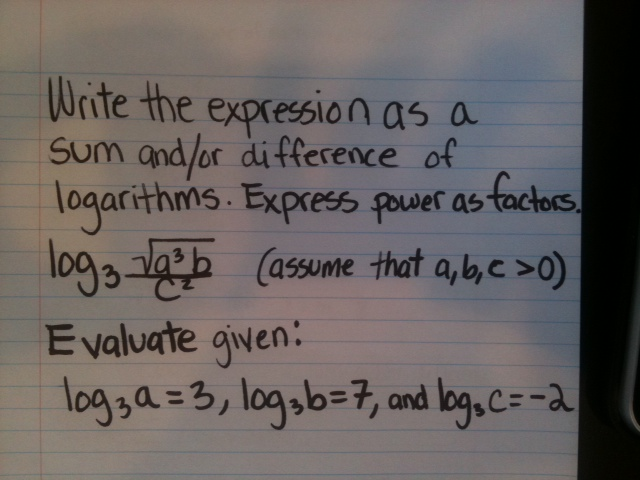 Write the expression as a
sum and/or difference of
logarithms. Express power as factors.
log₃ √(a³b)/c² (assume that a,b,c >0)
Evaluate given:
log₃a=3, log₃b=7, and log₃c=-2